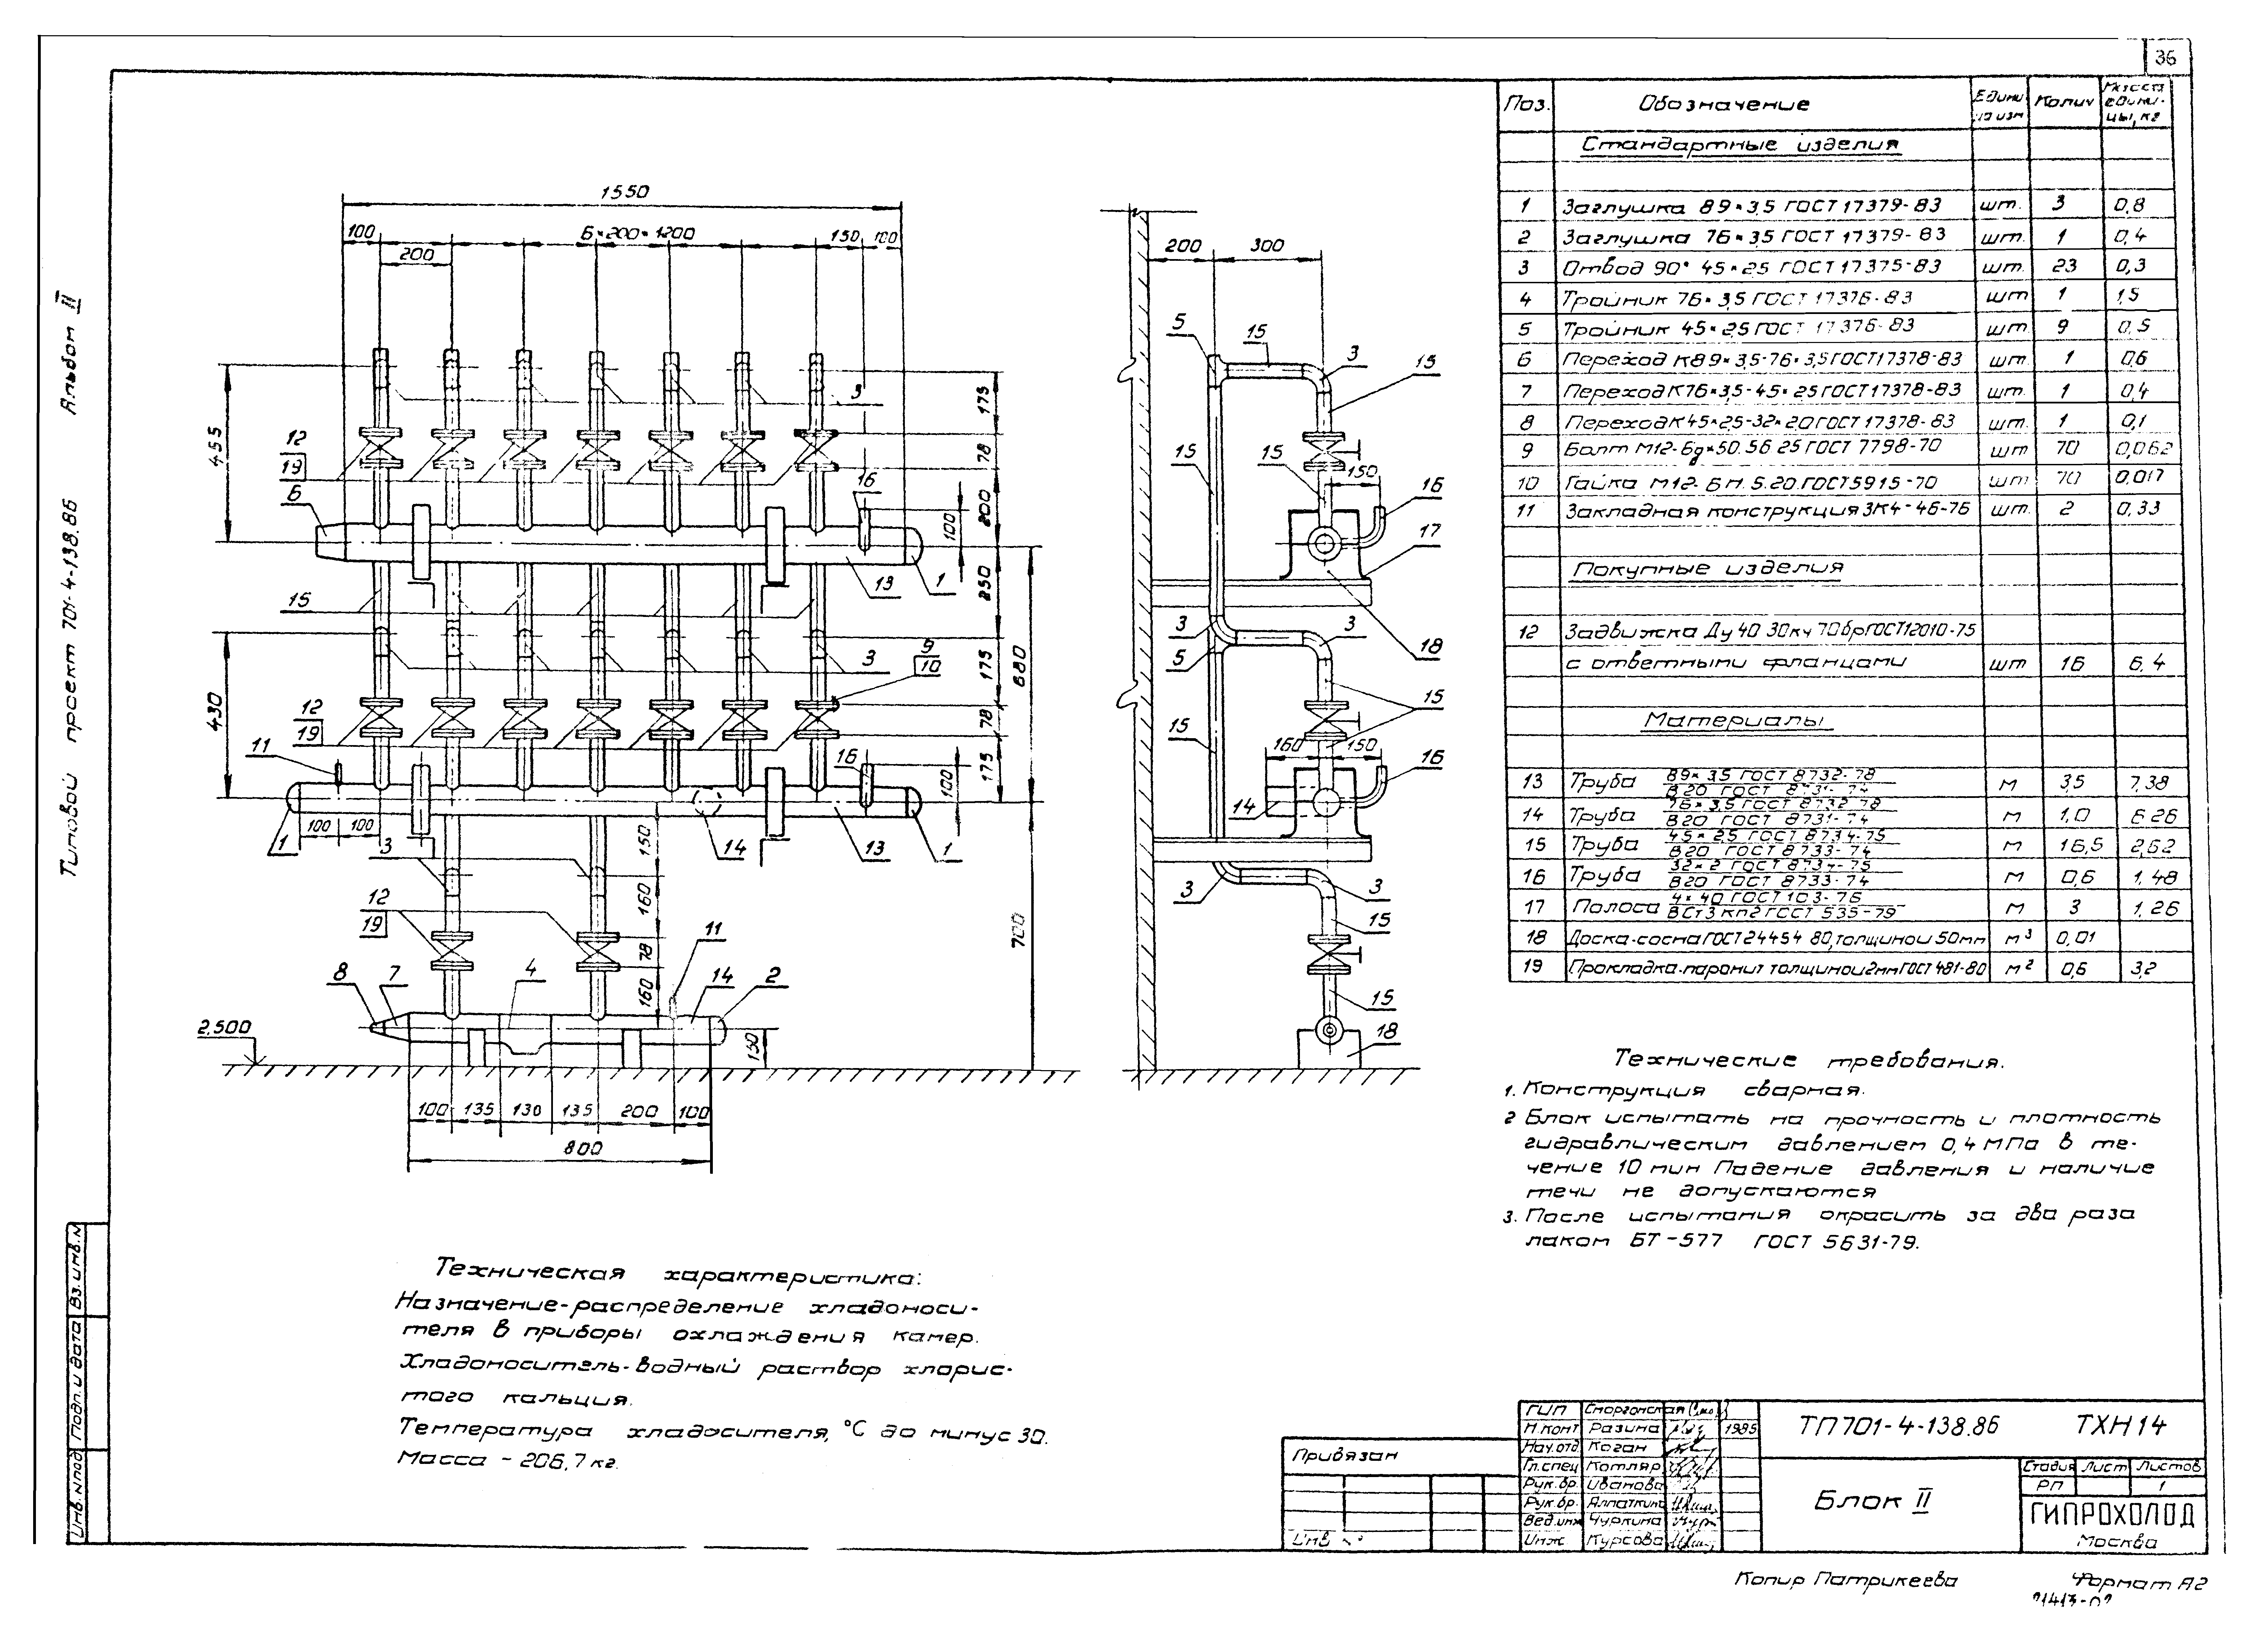 36
Типовой проект 701-4-138.86 Альбом II
Поз. Обозначение Едини ца изм Колич Масса едини- цы, кг
Стандартные изделия
1 Заглушка 89×3,5 ГОСТ 17379-83 шт. 3 0,8
2 Заглушка 76×3,5 ГОСТ 17379-83 шт. 1 0,4
3 Отвод 90° 45×2,5 ГОСТ 17375-83 шт. 23 0,3
4 Тройник 76×3,5 ГОСТ 17376-83 шт 1 1,5
5 Тройник 45×2,5 ГОСТ 17376-83 шт. 9 0,5
6 Переход К89×3,5-76×3,5 ГОСТ 17378-83 шт. 1 0,6
7 Переход К76×3,5-45×2,5 ГОСТ 17378-83 шт. 1 0,4
8 Переход К45×2,5-32×2,0 ГОСТ 17378-83 шт. 1 0,1
9 Болт М12-6g×50.56 25 ГОСТ 7798-70 шт 70 0,062
10 Гайка М12-6Н.5.20.ГОСТ 5915-70 шт 70 0,017
11 Закладная конструкция ЗК4-46-76 шт. 2 0,33
Покупные изделия
12 Задвижка Ду 40 30кч 70бр ГОСТ 12010-75
с ответными фланцами шт 16 6,4
Материалы
13 Труба 89×3,5 ГОСТ 8732-78 / В20 ГОСТ 8731-74 м 3,5 7,38
14 Труба 76×3,5 ГОСТ 8732-78 / В20 ГОСТ 8731-74 м 1,0 6.26
15 Труба 45×2,5 ГОСТ 8734-75 / В20 ГОСТ 8733-74 м 16,5 2,62
16 Труба 32×2 ГОСТ 8734-75 / В20 ГОСТ 8733-74 м 0,6 1,48
17 Полоса 4×40 ГОСТ 103-76 / ВСт3 кп2 ГОСТ 535-79 м 3 1,26
18 Доска-сосна ГОСТ 24454 80, толщиной 50мм м³ 0,01
19 Прокладка-паронит толщиной 2мм ГОСТ 481-80 м² 0,6 3,2
1550
100 6×200=1200 150 100
200
455
12
19
6
3
175
78
200
100
16
250
13
1
15
3
9
10
175
880
430
12
19
11
16
78
175
100
1
100 100
3
150
14
13
1
12
19
160
78
160
11
8 7 4 14 2
2,500
150
700
100 135 130 135 200 100
800
200 300
5 15 3 15
15 15 150 16
17
3 3 18
5
15
15
160 150 16
14
3 3
15
15
18
Технические требования.
1. Конструкция сварная.
2 Блок испытать на прочность и плотность
гидравлическим давлением 0,4 МПа в те-
чение 10 мин Падение давления и наличие
течи не допускаются
3. После испытания окрасить за два раза
лаком БТ-577 ГОСТ 5631-79.
Техническая характеристика:
Назначение-распределение хладоноси-
теля в приборы охлаждения камер.
Хладоноситель-водный раствор хлорис-
того кальция.
Температура хладосителя, °С до минус 30.
Масса - 206,7 кг.
Вз. инв. №
Подп. и дата
Инв. № под
Привязан
Инв №
ГИП Сморгонская
Н.конт Разина 1985
Нач.отд Коган
Гл.спец Котляр
Рук.бр. Иванова
Рук.бр.
Вед.инж Чуркина
Инж Курсова
ТП701-4-138.86 ТХН14
Блок II
Стадия Лист Листов
РП 1
ГИПРОХОЛОД
Москва
Копир Патрикеева Формат А2
21413-02